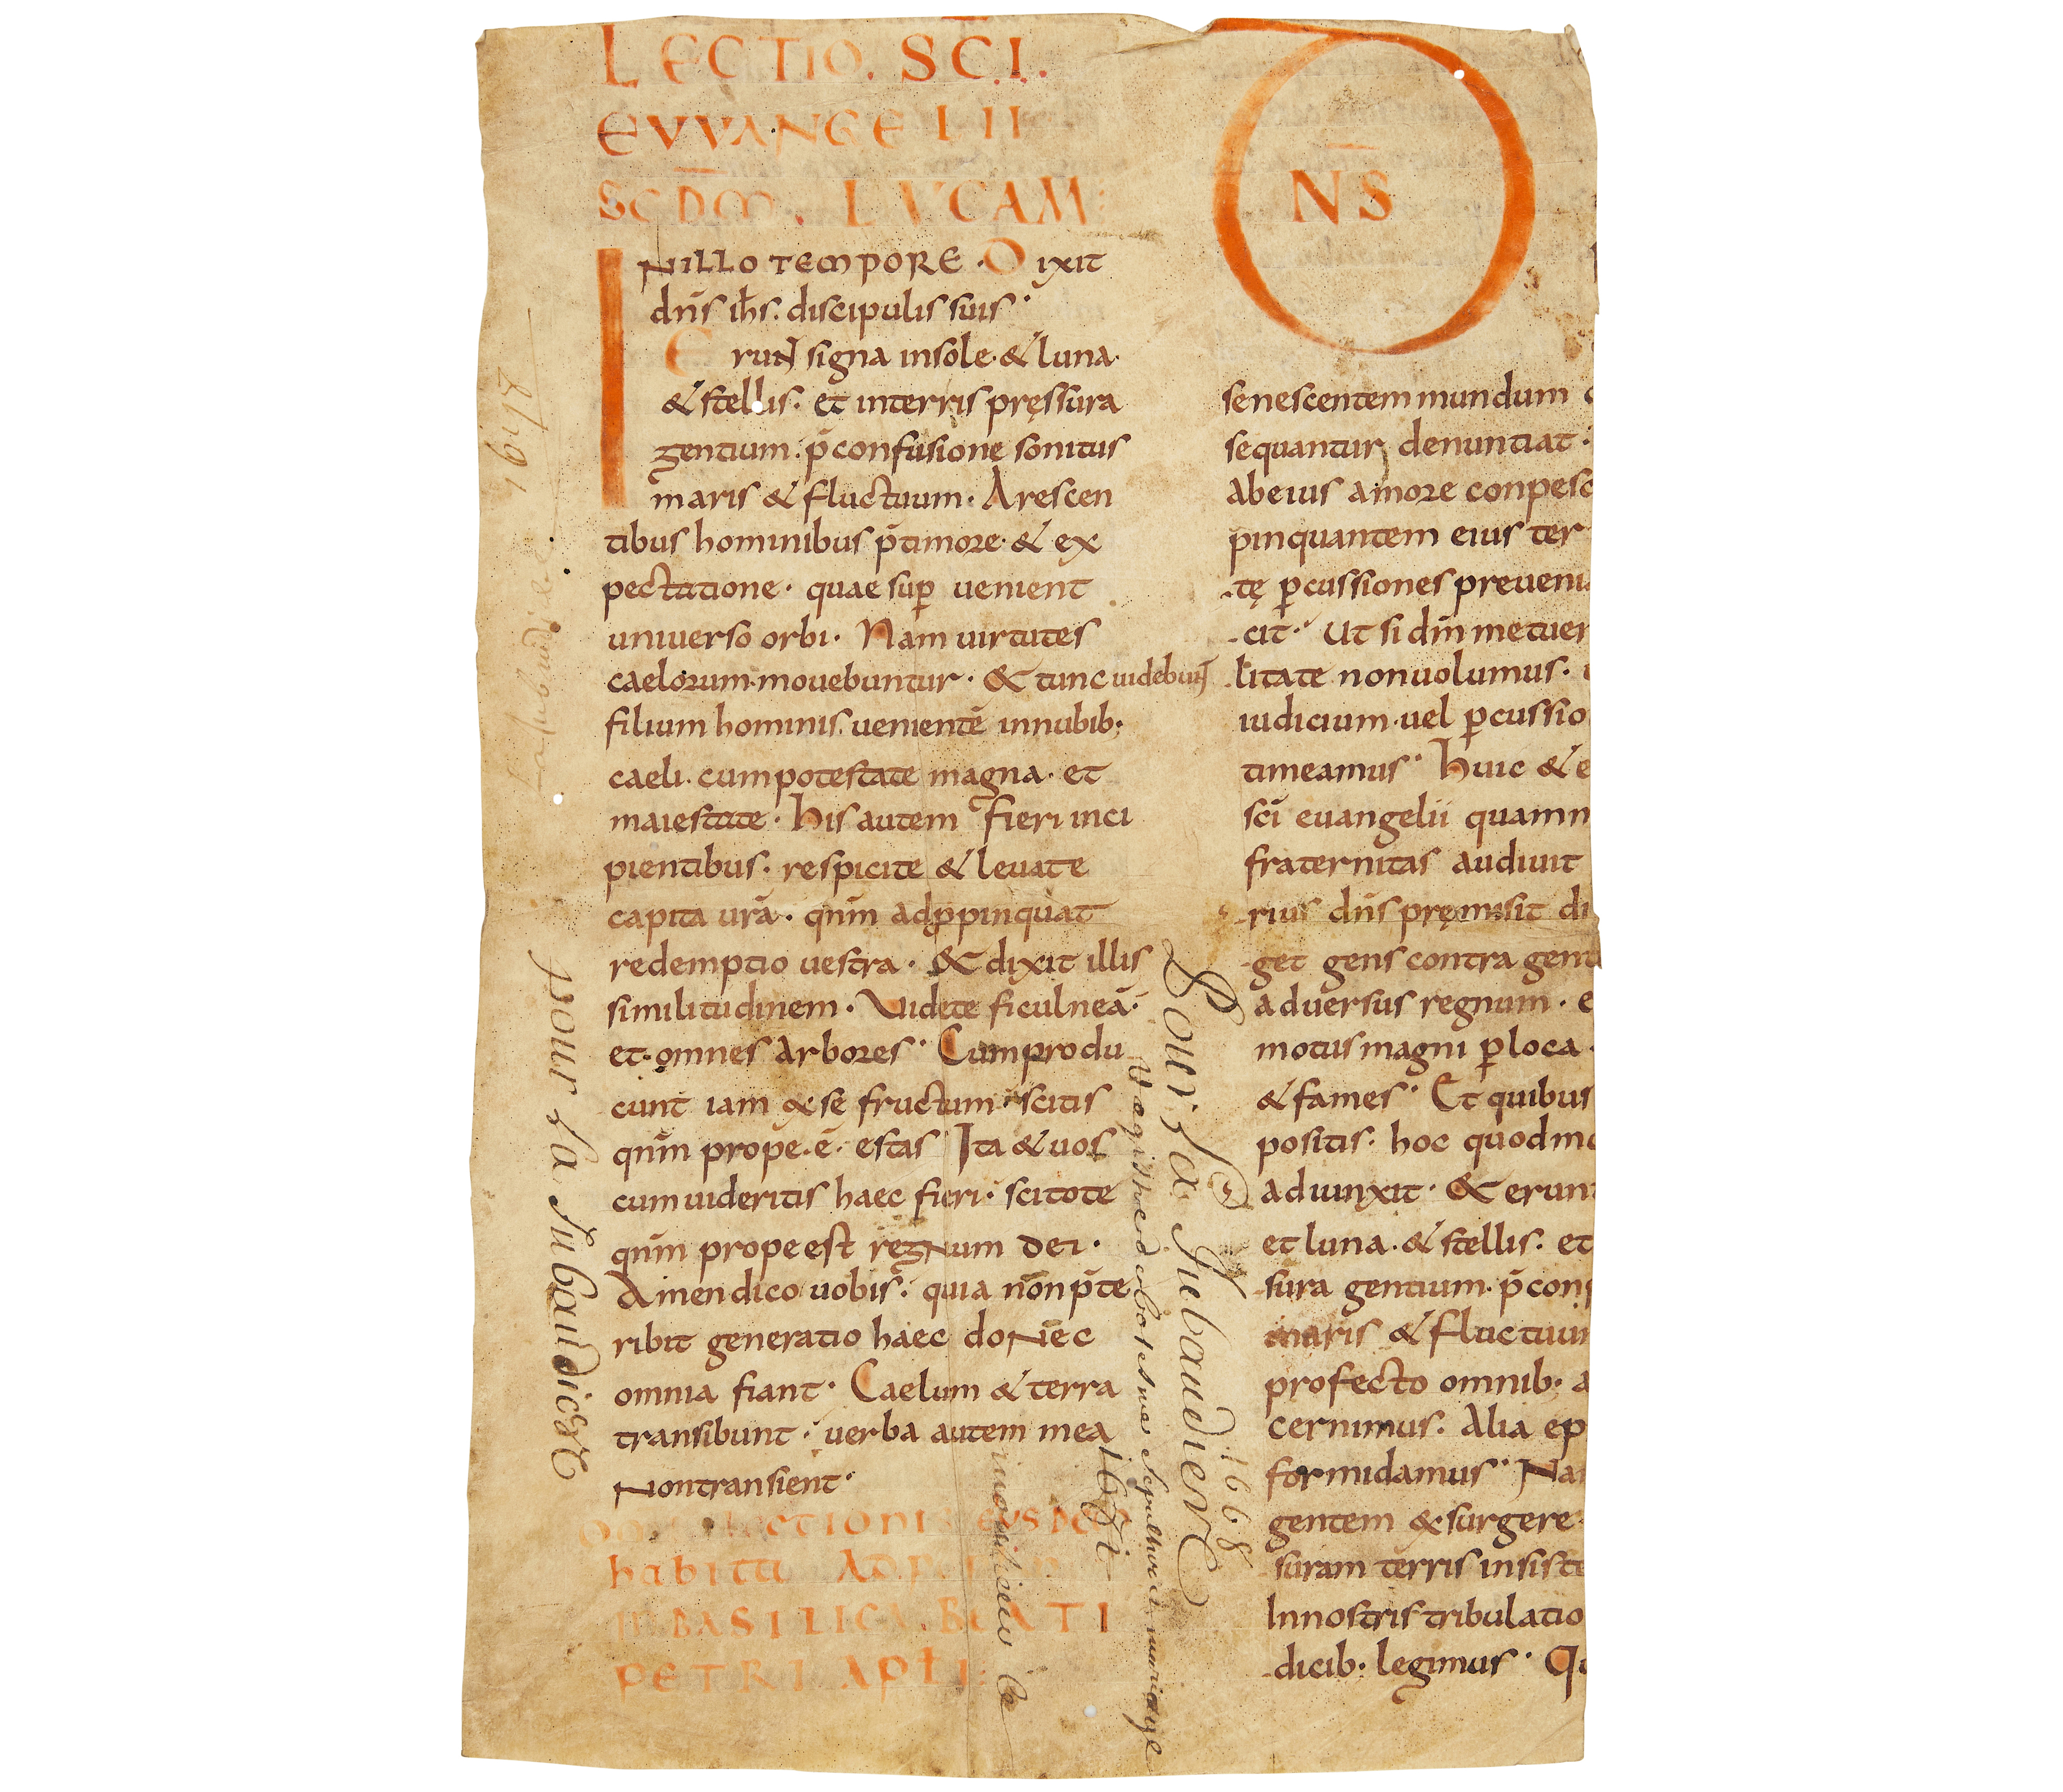 LECTIO. SC̄I.
EVVANGELII
SCDM̄. LVCAM:
INILLO TEMPORE · Dixit
dn̄s ih̄s. discipulis suis·
Erunt signa insole· & luna·
& stellis. et interris pręssura
gentium. p̄ confusionę sonitus
maris & fluctuum · Arescen
tibus hominibus p̄ timore· & ex
pectatione · quae suꝑ venient
universo orbi · Nam virtutes
caelorum movebuntur · & tunc videbunt
filium hominis. venientē innubib·
caeli. cum potestate magna · et
maiestate · His autem fieri inci
pientibus. respicite & levate
capita urā · qnm̄ adꝓpinquat
redemptio vestra · & dixit illis
similitudinem · Videte ficulneā·
et omnes arbores · Cum produ
cunt iam &se fructum · scitis
qnm̄ prope · ē · estas Ita & vos
cum videritis haec fieri · scitote
qnm̄ prope est regnum dei ·
Amen dico vobis. quia non p̄te
ribit generatio haec donec
omnia fiant · Caelum & terra
transibunt · verba autem mea
Nontransient·
LECTIONIS EIUSDEM
habita AD
IN BASILICA. BEATI
PETRI APƚI:
DN̄S
senescentem mundum
sequantur denuntiat ·
Abeius amore conpesc
pinquantem eius ter
tę ꝑcussiones preveni
cit · Ut si dn̄m metuer
litate nonvolumus ·
iudicium · vel ꝑcussio
timeamus · Huic & e
sc̄i evangelii quam m
fraternitas audivit
rius dn̄s pręmisit di
get gens contra gent
adversus regnum · e
motus magni ꝑ loca ·
& fames · Et quibus
positis · hoc quod mo
adiunxit · & erunt
et luna · & stellis. et
sura gentium · p̄ con
maris & fluctuum
profecto omnib · a
cernimus. Alia ep
formidamus · Na
gentem &surgere
suram terris insiste
Innostris tribulatio
dicib · legimus · Qu
pour La Aubaudiere
Pour La Aubaudiere
1668
1671